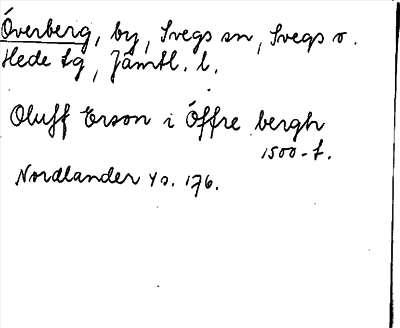 Överberg, by, Svegs sn, Svegs o.
Hede tg, Jämtl. l.
Oluff Erson i Öffre bergh
1500-t.
Nordlander ys. 176.